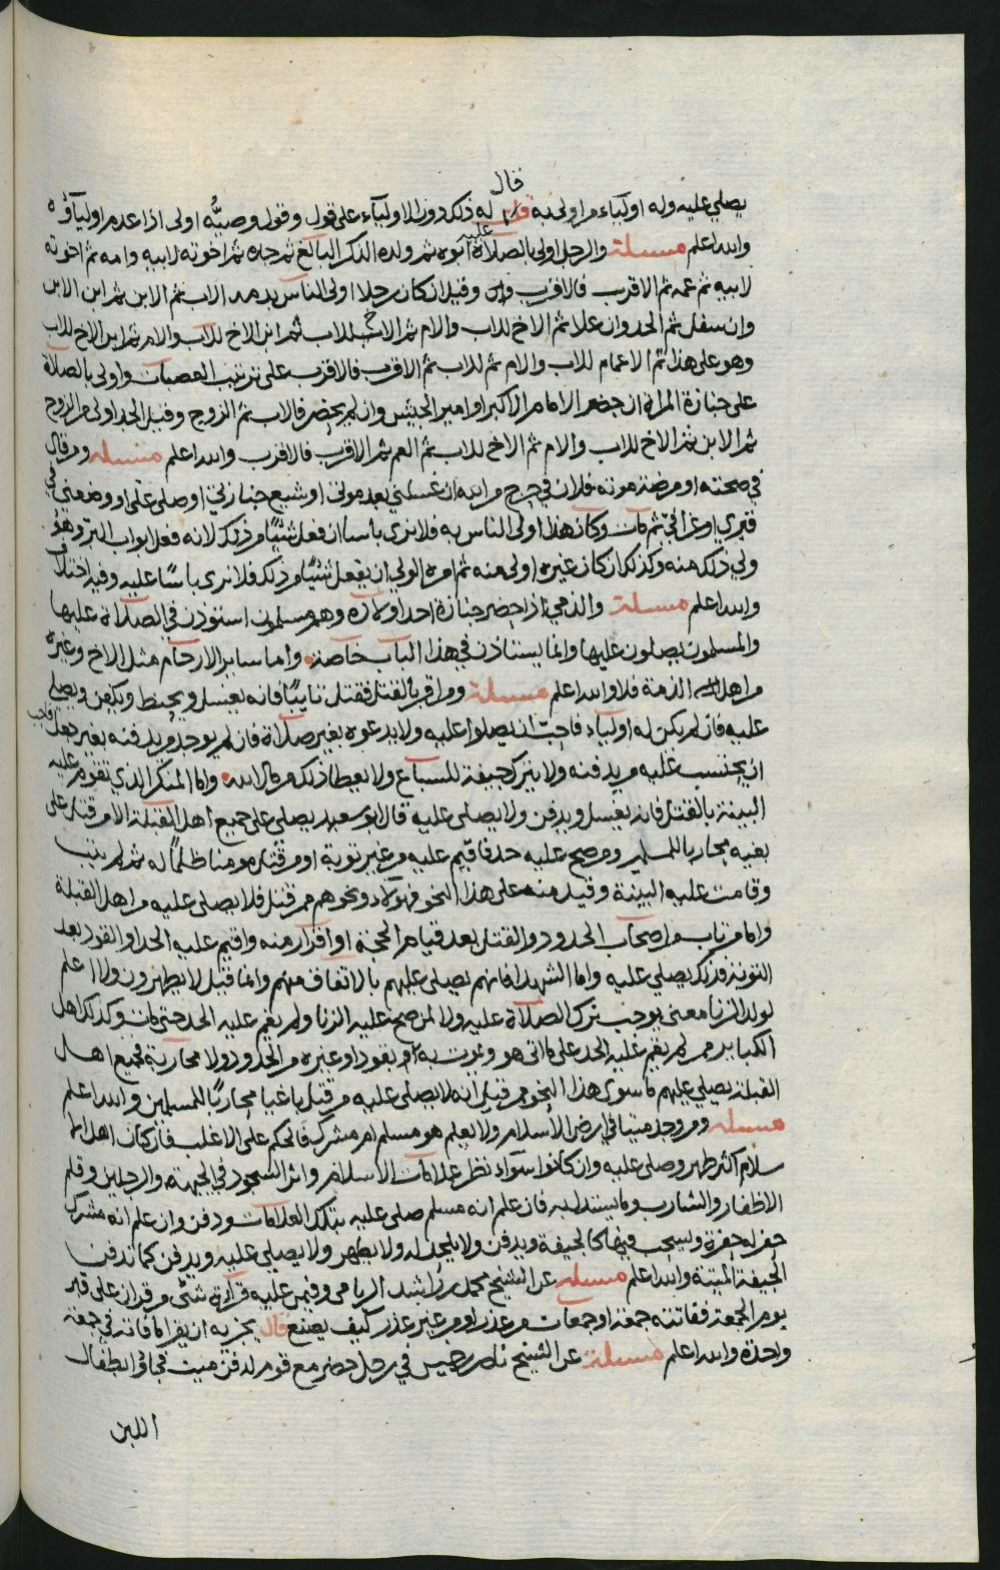 قال
يصلي عليه وله اولياء من اولى به قال له ذلك دون الاولياء على قول وقول وصيه اولى اذا عدم اولياؤه
والله اعلم مسئلة والرجل اولى بالصلاة عليه ابوه ثم ولده الذكر البالغ ثم جده ثم اخوته لابيه وامه ثم اخوته
لابيه ثم عمه ثم الاقرب فالاقرب وقيل ان كان رجلا اولى الناس بدمه الاب ثم الابن ثم ابن الابن
وان سفل ثم الجد وان علا ثم الاخ للاب والام ثم الاخ للاب ثم ابن الاخ للاب والام ثم ابن الاخ للاب
وهو على هذا ثم الاعمام للاب والام ثم للاب ثم الاقرب فالاقرب على ترتيب العصبات واولى بالصلاة
على جنازة المراة ان حضر الامام الاكبر او امير الجيش وان لم يحضر فالاب ثم الزوج وقيل الجد اولى من الزوج
ثم الابن ثم الاخ للاب والام ثم الاخ للاب ثم العم ثم الاقرب فالاقرب والله اعلم مسئلة ومن قال
في صحته او مرضه موته فلان في حرج من الله ان غسلني بعد موتي او شيع جنازتي او صلى علي او وضعني في
قبري او عزا لي ثم مات وكان هذا اولى الناس به فلا نرى باسا ان فعل شيئا من ذلك لانه فعل ابواب البر وهو
ولي ذلك منه وكذلك ان كان غيره اولى منه ثم امره الولي ان يفعل شيئا من ذلك فلا نرى باسا عليه وفيه اختلاف
والله اعلم مسئلة والذمي اذا حضر جنازة احد اولاده وهم مسلمون استوذن في الصلاة عليها
والمسلمون يصلون عليها وانما يستاذن في هذا الباب خاصة واما ساير الارحام مثل الاخ وغيره
من اهل الذمة فلا والله اعلم مسئلة ومن اقر بالقتل فقتل تايبا فانه يغسل ويحنط ويكفن ويصلى
عليه فان لم يكن له اولياء فاحب ان يصلوا عليه ولا يدعوه بغير صلاة فان لم يوجد من يدفنه بغير جعل فاحب
ان يحتسب عليه من يدفنه ولا يترك جيفة للسباع ولا يعطا ذلك من مال الله واما المنكر الذي تقوم عليه
البينة بالقتل فانه يغسل ويدفن ولا يصلى عليه قال ابو سعيد يصلي على جميع اهل القبلة الا من قتل على
بغيه محاربا للمسلمين ومن صح عليه حد فاقيم عليه من غير توبة او من قتل مومنا ظلما له ثم لم يتب
وقامت عليه البينة وقيد منه على هذا النحو فهؤلاء ونحوهم ممن قتل فلا يصلى عليه من اهل القبلة
واما من تاب من اصحاب الحدود والقتل بعد قيام الحجة او اقرار منه واقيم عليه الحد او القود بعد
التوبة فذلك يصلي عليه واما الشهدا فانهم يصلى عليهم بالاتفاف منهم وانما قيل لا يطهرون ولا اعلم
لولد الزنا معنى يوجب ترك الصلاة عليه ولا لمن صح عليه الزنا ولم يقم عليه الحد حتى مات وكذلك اهل
الكباير ممن لم يقم عليه الحد على ما اتى هو ويموت به او بقود او غيره من الحدود ولا محاربة فجميع اهل
القبلة يصلي عليهم ما سوى هذا النحو ممن قيل انه لا يصلى عليه من قتل باغيا محاربا للمسلمين والله اعلم
مسئلة ومن وجد ميتا في ارض الاسلام ولا يعلم هو مسلم ام مشرك فالحكم على الاغلب فان كان اهل الا
سلام اكثر طهر وصلى عليه وان كانوا سواء نظر علامات الاسلام واثر السجود في الجبهة والرجلين وقلم
الاظفار والشارب وما يستدل به فان علم انه مسلم صلى عليه بتلك العلامات ودفن وان علم انه مشرك
حفر له حفرة ويسحب فيها كالجيفة ويدفن ولا يلحد له ولا يطهر ولا يصلى عليه ويدفن كما تدفن
الجيفة الميتة والله اعلم مسئلة عن الشيخ محمد بن راشد الريامي وفيمن عليه قراءة شي من قران على قبر
يوم الجمعة ففاتته جمعة او جمعات من عذر او من غير عذر كيف يصنع قال يجزيه ان يقرا ما فاته في جمعة
واحدة والله اعلم مسئلة عن الشيخ ناصر بن خميس في رجل حضر مع قوم لدفن ميت فجاؤا بطفال
اللبن